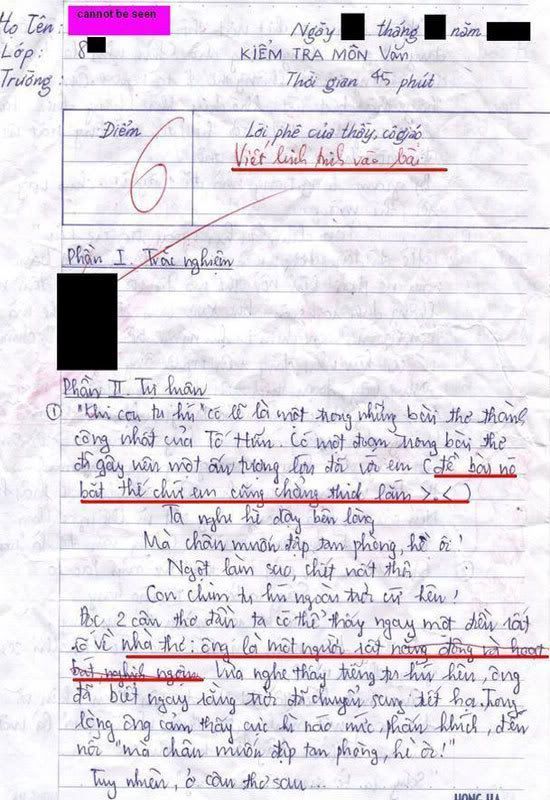 cannot be seen
Họ Tên: Ngày tháng năm
Lớp: 8 KIỂM TRA MÔN VĂN
Trường: Thời gian 45 phút
Điểm Lời phê của thầy, cô giáo
6 Viết linh tinh vào bài
Phần I. Trắc nghiệm
Phần II. Tự luận
① "Khi con tu hú" có lẽ là một trong những bài thơ thành
công nhất của Tố Hữu. Có một đoạn trong bài thơ
đã gây nên một ấn tượng lớn đối với em (đề bài nó
bắt thế chứ em cũng chẳng thích lắm >.<)
Ta nghe hè dậy bên lòng
Mà chân muốn đạp tan phòng, hè ôi!
Ngột làm sao, chết uất thôi
Con chim tu hú ngoài trời cứ kêu!
Đọc 2 câu thơ đầu ta có thể thấy ngay một điều rất
rõ về nhà thơ: ông là một người rất năng động và hoạt
bát, nghịch ngợm. Vừa nghe thấy tiếng tu hú kêu, ông
đã biết ngay rằng trời đã chuyển sang tiết hạ. Trong
lòng ông cảm thấy cực kì náo nức, phấn khích, đến
nỗi "mà chân muốn đạp tan phòng, hè ôi!"
Tuy nhiên, ở câu thơ sau...
HONG HA